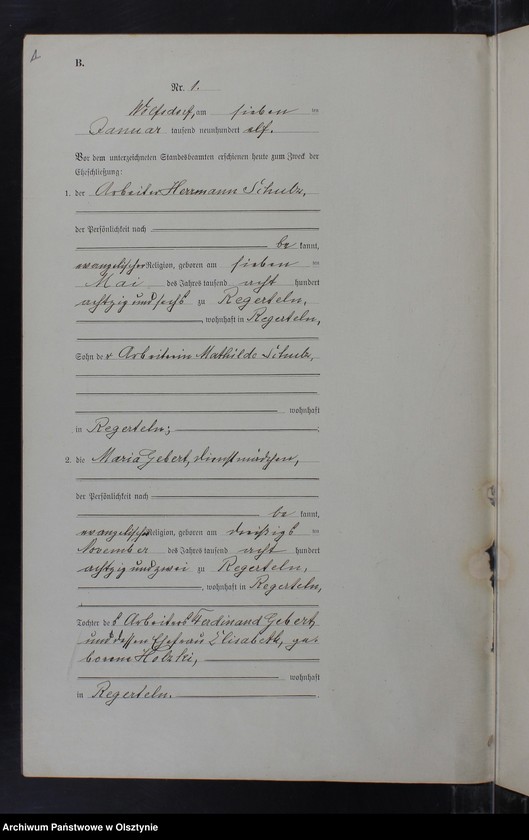 B.
Nr. 1.
Wolfsdorf, am sieben ten
Januar tausend neunhundert elf.
Vor dem unterzeichneten Standesbeamten erschienen heute zum Zweck der
Eheschließung:
1. der Arbeiter Herrmann Schulz,
der Persönlichkeit nach
be kannt,
evangelischer Religion, geboren am sieben ten
Mai des Jahres tausend acht hundert
achtzig und sechs zu Regerteln,
, wohnhaft in Regerteln,
Sohn der Arbeiterin Mathilde Schulz,
wohnhaft
in Regerteln;
2. die Maria Gebert, Dienstmädchen,
der Persönlichkeit nach
be kannt,
evangelischer Religion, geboren am dreißigs ten
November des Jahres tausend acht hundert
achtzig und zwei zu Regerteln,
, wohnhaft in Regerteln,
Tochter des Arbeiters Ferdinand Gebert
und dessen Ehefrau Elisabeth, ge-
borene Holzki,
wohnhaft
in Regerteln.
Archiwum Państwowe w Olsztynie